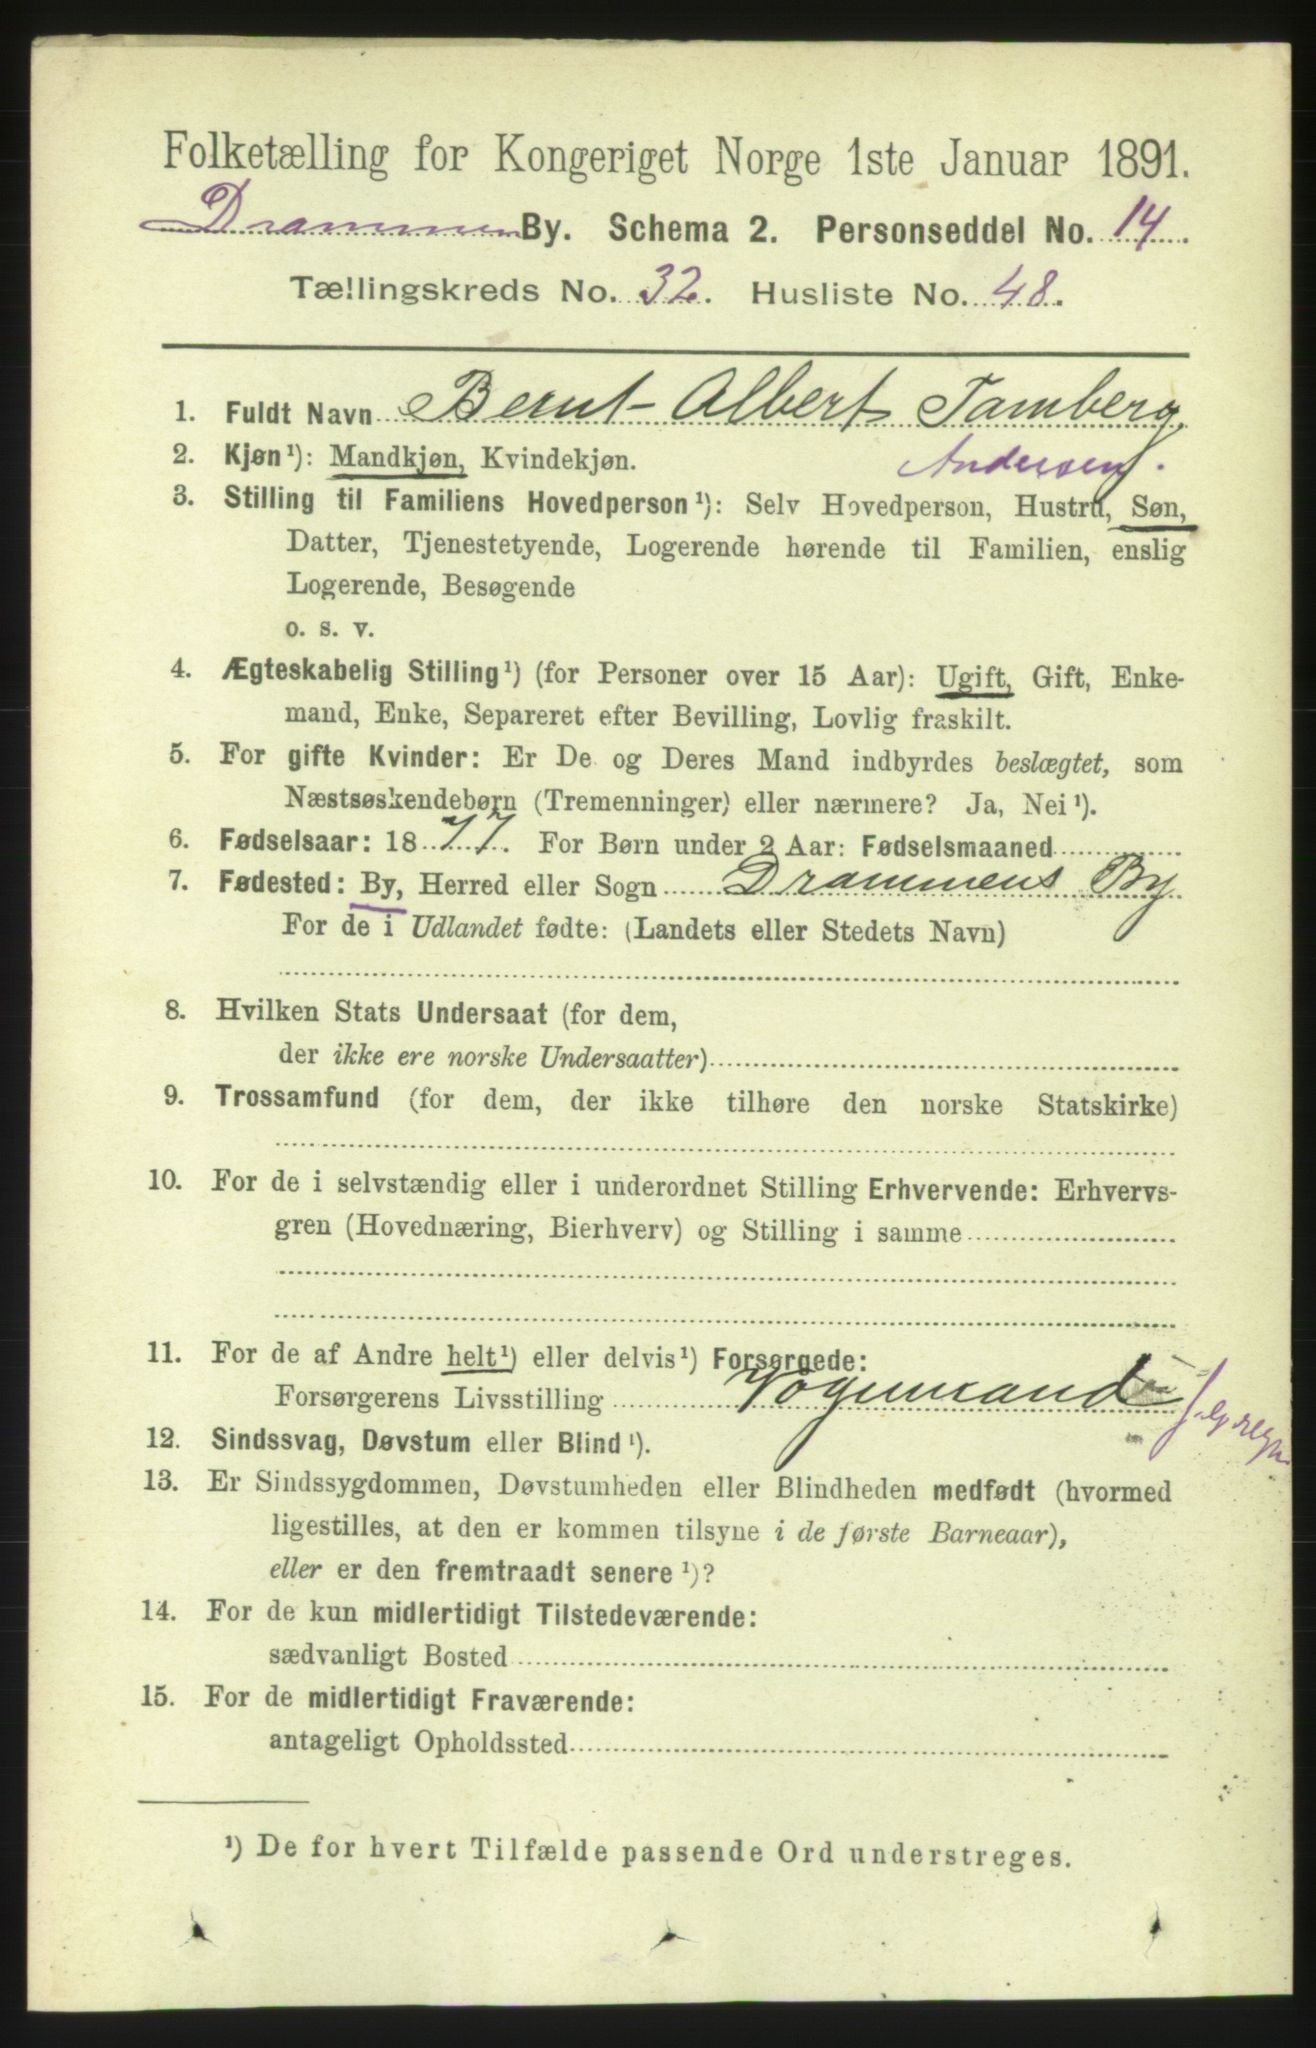 Folketælling for Kongeriget Norge 1ste Januar 1891.
Drammen By. Schema 2. Personseddel No. 14.
Tællingskreds No. 32. Husliste No. 48.
1. Fuldt Navn Bernt Albert Tamberg
Andersen.
2. Kjøn¹): Mandkjøn, Kvindekjøn.
3. Stilling til Familiens Hovedperson¹): Selv Hovedperson, Hustru, Søn,
Datter, Tjenestetyende, Logerende hørende til Familien, enslig
Logerende, Besøgende
o. s. v.
4. Ægteskabelig Stilling¹) (for Personer over 15 Aar): Ugift, Gift, Enke-
mand, Enke, Separeret efter Bevilling, Lovlig fraskilt.
5. For gifte Kvinder: Er De og Deres Mand indbyrdes beslægtet, som
Næstsøskendebørn (Tremenninger) eller nærmere? Ja, Nei¹).
6. Fødselsaar: 1877. For Børn under 2 Aar: Fødselsmaaned
7. Fødested: By, Herred eller Sogn Drammens By
For de i Udlandet fødte: (Landets eller Stedets Navn)
8. Hvilken Stats Undersaat (for dem,
der ikke ere norske Undersaatter)
9. Trossamfund (for dem, der ikke tilhøre den norske Statskirke)
10. For de i selvstændig eller i underordnet Stilling Erhvervende: Erhvervs-
gren (Hovednæring, Bierhverv) og Stilling i samme
11. For de af Andre helt¹) eller delvis¹) Forsørgede:
Forsørgerens Livsstilling Vognmand
12. Sindssvag, Døvstum eller Blind¹).
13. Er Sindssygdommen, Døvstumheden eller Blindheden medfødt (hvormed
ligestilles, at den er kommen tilsyne i de første Barneaar),
eller er den fremtraadt senere¹)?
14. For de kun midlertidigt Tilstedeværende:
sædvanligt Bosted
15. For de midlertidigt Fraværende:
antageligt Opholdssted
¹) De for hvert Tilfælde passende Ord understreges.